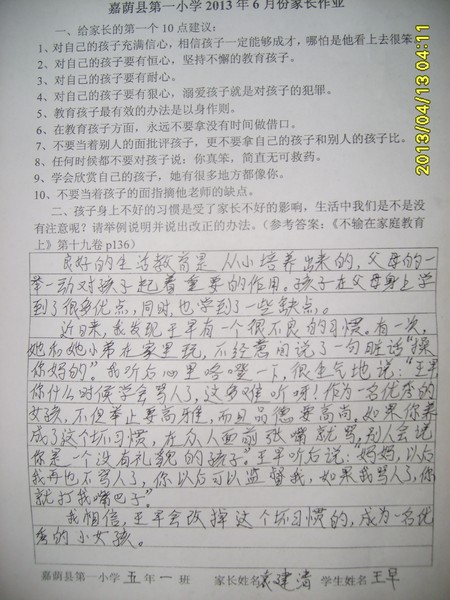 嘉荫县第一小学2013年6月份家长作业
一、给家长的第一个10点建议:
1、对自己的孩子充满信心,相信孩子一定能够成才,哪怕是他看上去很笨
2、对自己的孩子要有恒心,坚持不懈的教育孩子。
3、对自己的孩子要有耐心。
4、对自己的孩子要有狠心,溺爱孩子就是对孩子的犯罪。
5、教育孩子最有效的办法是以身作则。
6、在教育孩子方面,永远不要拿没有时间做借口。
7、不要当着别人的面批评孩子,更不要拿自己的孩子和别人的孩子比。
8、任何时候都不要对孩子说:你真笨,简直无可救药。
9、学会欣赏自己的孩子,她有很多地方都像你。
10、不要当着孩子的面指摘他老师的缺点。
二、孩子身上不好的习惯是受了家长不好的影响,生活中我们是不是没
有注意呢?请举例说明并说出改正的办法。(参考答案:《不输在家庭教育
上》第十九卷 p136)
良好的生活教育是从小培养出来的,父母的一
举一动对孩子起着重要的作用。孩子在父母身上学
到了很多优点,同时也学到了一些缺点。
近日来,我发现王早有一个很不良的习惯。有一次,
她和她小弟在家里玩,不经意间说了一句脏话“操
你妈的”。我听后心里咯噔一下,很生气地说:“王早
你什么时候学会骂人了,这多难听呀!作为一名优秀的
女孩,不但举止要高雅,而且品德要高尚。如果你养
成了这个坏习惯,在众人面前张嘴就骂,别人会说
你是一个没有礼貌的孩子”。王早听后说:妈妈,以后
我再也不骂人了,你以后可以监督我,如果我骂人了,你
就打我嘴巴子”。
我相信,王早会改掉这个坏习惯的,成为一名优
秀的小女孩。
嘉荫县第一小学 五 年 一 班 家长姓名 袁建清 学生姓名 王早
2013/04/13 04:11